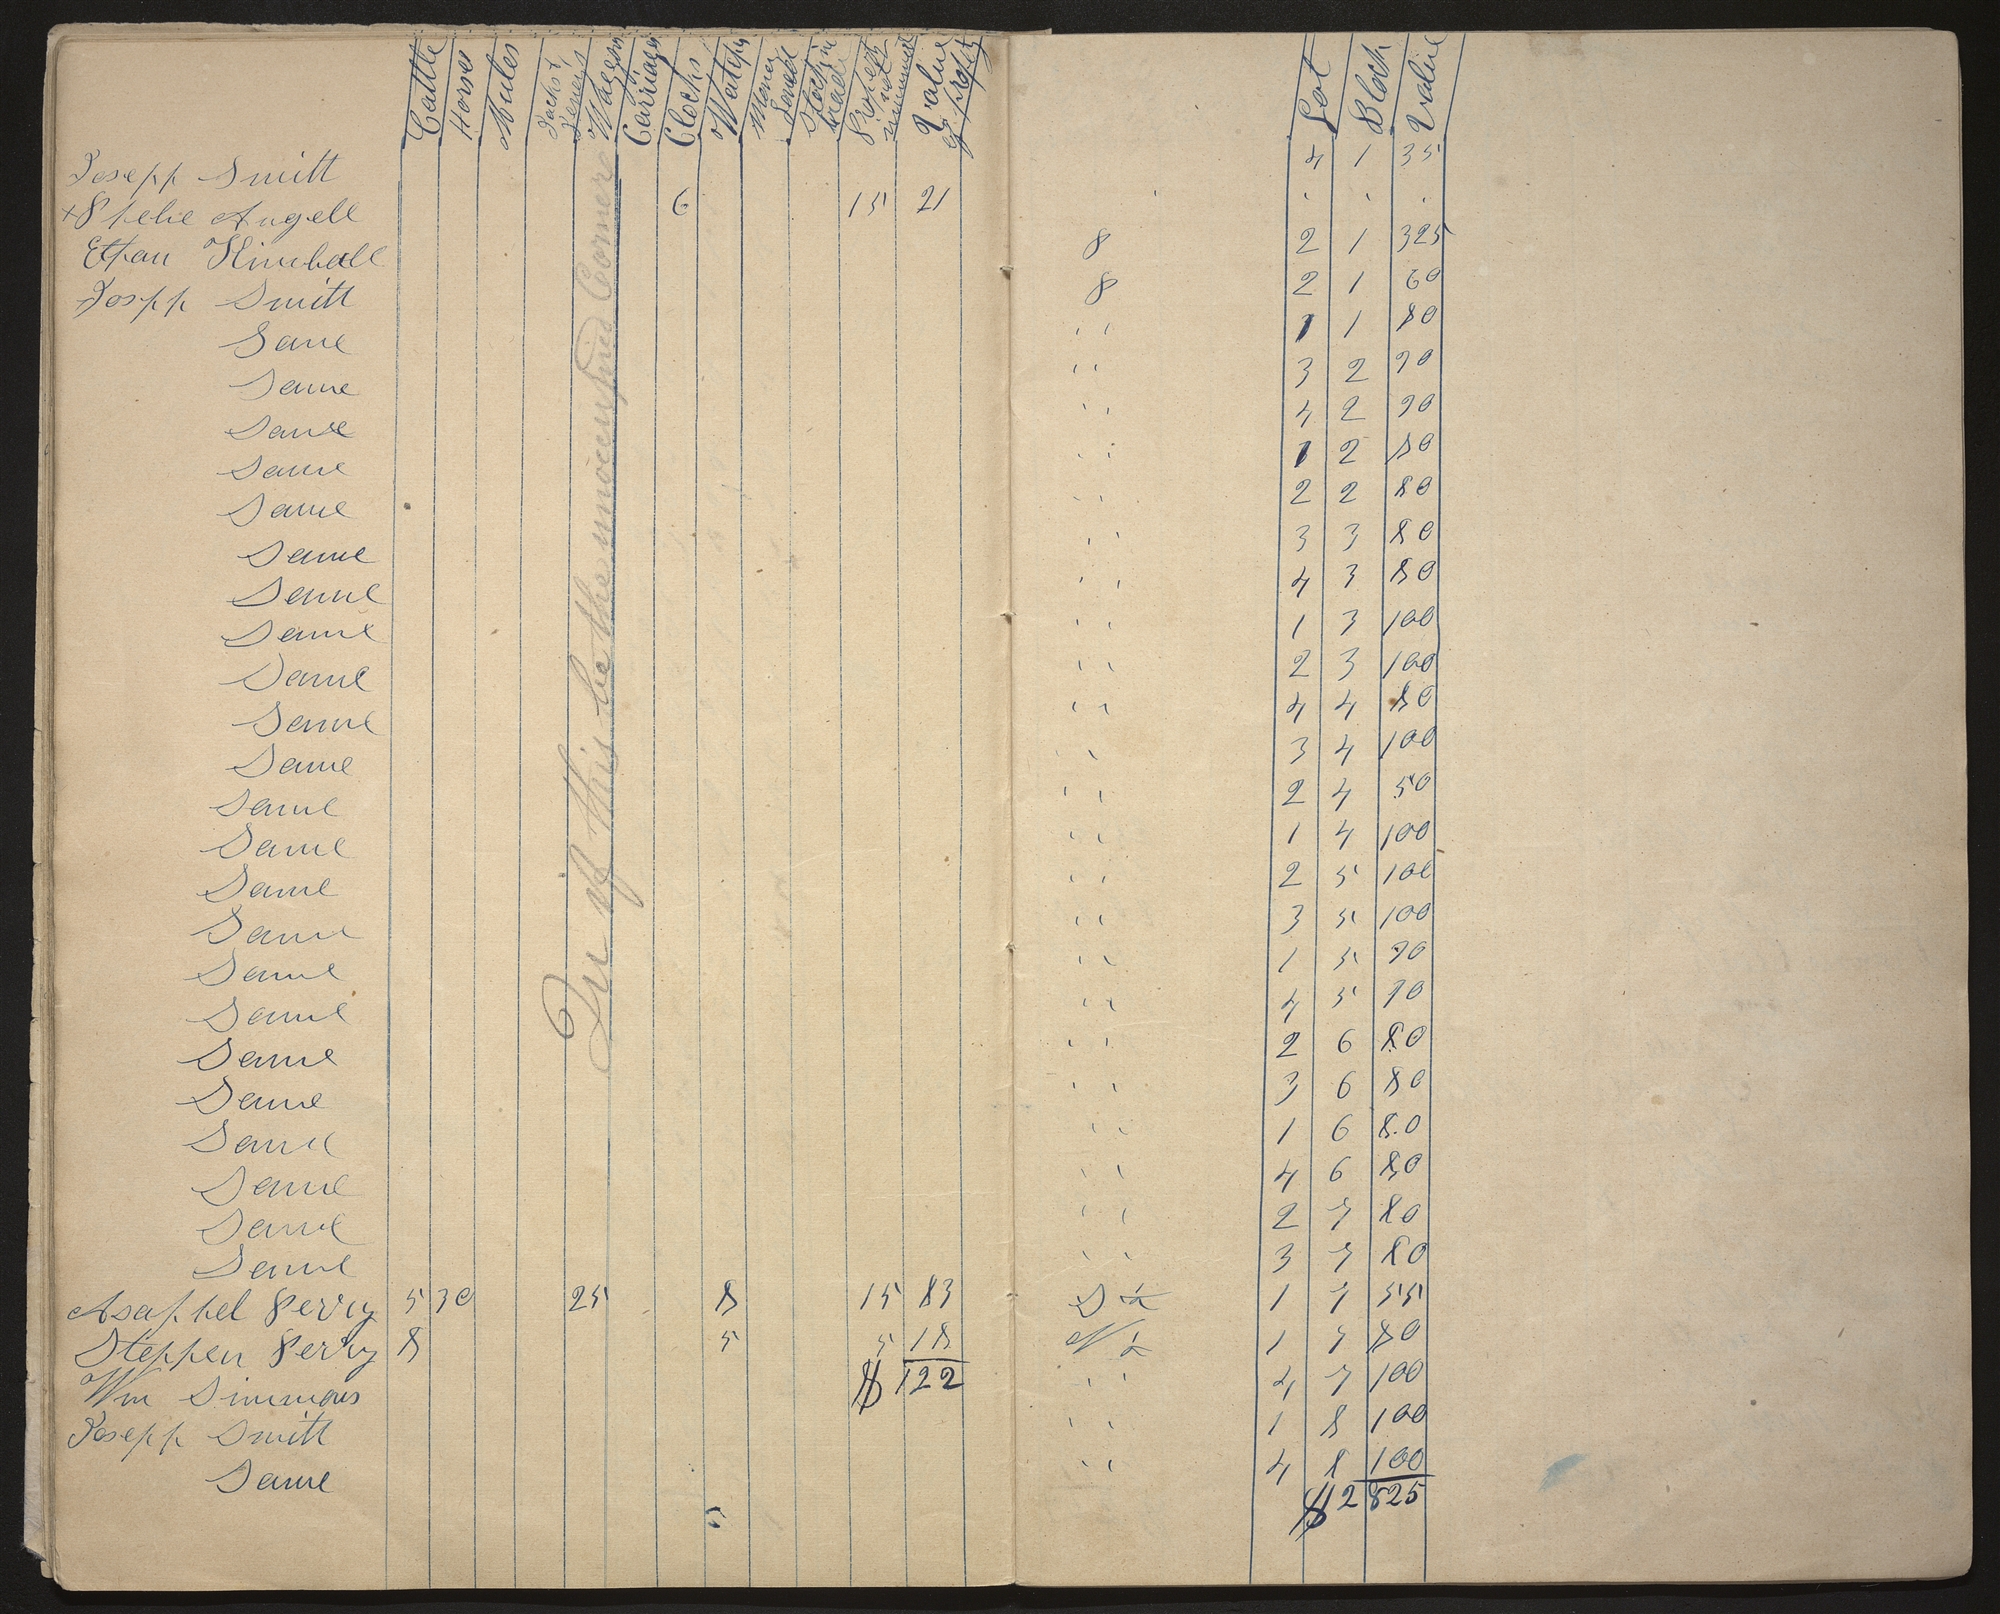 Cattle Horses Mules Jacks & Jeneys Wagons Carriages Clocks Watches Money Loned Stock in trade Property not enumerated Value of proprty Lot Block Value
Joseph Smith 4 1 35
+ Phebe Angell 6 15 21 . . .
Ethan Kimball 8 2 1 325
Joseph Smith 8 2 1 60
Same " 1 1 80
Same " 3 2 70
Same " 4 2 70
Same " 1 2 80
Same " 2 2 80
Same " 3 3 80
Same " 4 3 80
Same " 1 3 100
Same " 2 3 100
Same " 4 4 80
Same " 3 4 100
Same " 2 4 50
Same " 1 4 100
Same " 2 5 100
Same " 3 5 100
Same " 1 5 70
Same " 4 5 70
Same " 2 6 80
Same " 3 6 80
Same " 1 6 80
Same " 4 6 80
Same " 2 7 80
Same " 3 7 80
Asaphel Perry 5 30 25 8 15 83 S ½ 1 7 55
Stephen Perry 8 5 5 18 N ½ 1 7 80
$ 122
Wm Simmons " 4 7 100
Joseph Smith " 1 8 100
Same " 4 8 100
$ 2825
if this be the